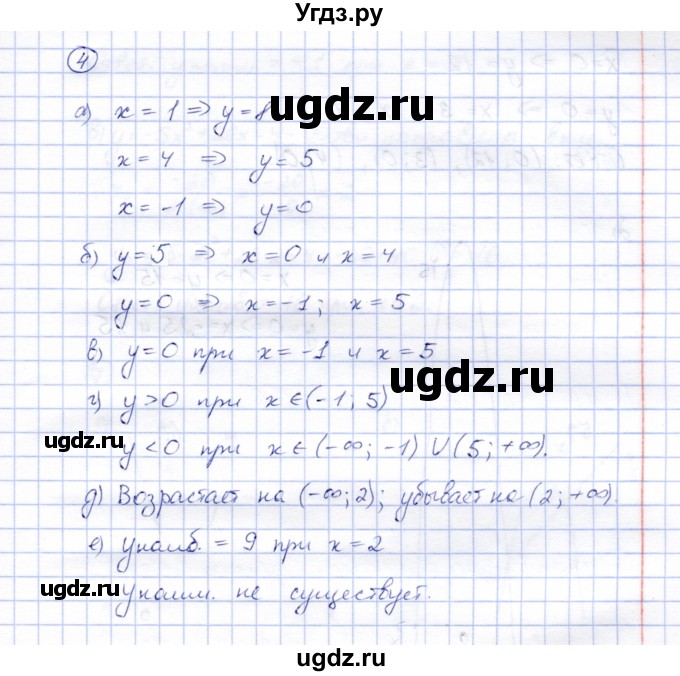 Угдз.ру
4
а) x = 1 => y = 8
ugdz.ru
x = 4 => y = 5
x = -1 => y = 0
б) y = 5 => x = 0 и x = 4
y = 0 => x = -1; x = 5
в) y = 0 при x = -1 и x = 5
ugdz.ru
г) y > 0 при x ∈ (-1; 5)
ugdz.ru
y < 0 при x ∈ (-∞; -1) U (5; +∞).
д) Возрастает на (-∞; 2); убывает на (2; +∞).
е) yнаиб. = 9 при x = 2
ugdz.ru
yнаим. не существует.
ugdz.ru